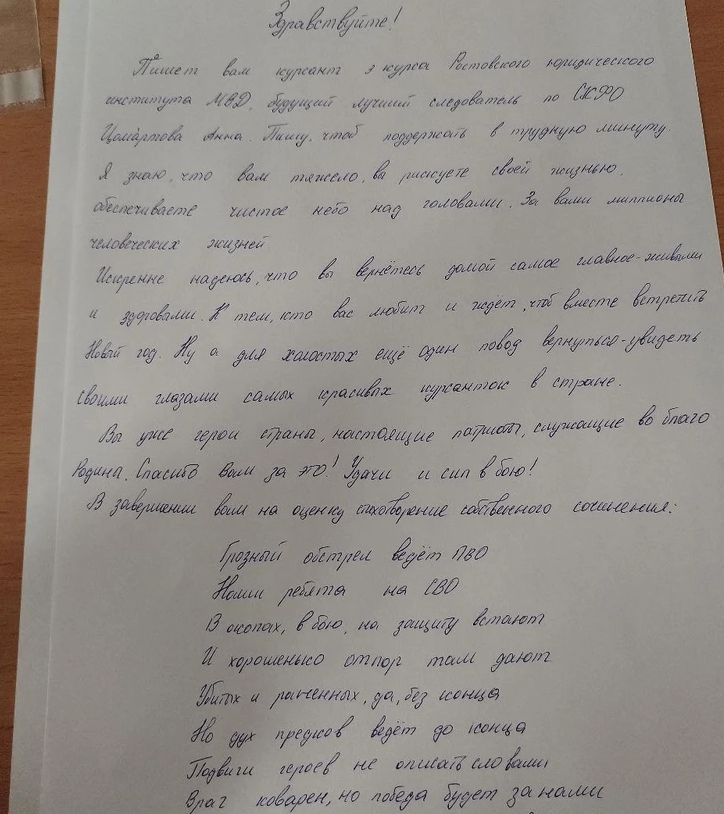 Здравствуйте!
Пишет вам курсант 3 курса Ростовского юридического
института МВД, будущий лучший следователь по СКФО
Цомартова Анна. Пишу, чтоб поддержать в трудную минуту.
Я знаю, что вам тяжело, вы рискуете своей жизнью,
обеспечиваете чистое небо над головами. За вами миллионы
человеческих жизней.
Искренне надеюсь, что вы вернётесь домой самое главное-живыми
и здоровыми. К тем, кто вас любит и ждёт, чтоб вместе встретить
Новый год. Ну а для холостых ещё один повод вернуться-увидеть
своими глазами самых красивых курсанток в стране.
Вы уже герои страны, настоящие патриоты, служащие во благо
Родины. Спасибо вам за это! Удачи и сил в бою!
В завершении вам на оценку стихотворение собственного сочинения:
Грозный обстрел ведёт ПВО
Наши ребята на СВО
В окопах, в бою, на защиту встают
И хорошенько отпор там дают
Убитых и раненных, да, без конца
Но дух предков ведёт до конца
Подвиги героев не описать словами
Враг коварен, но победа будет за нами